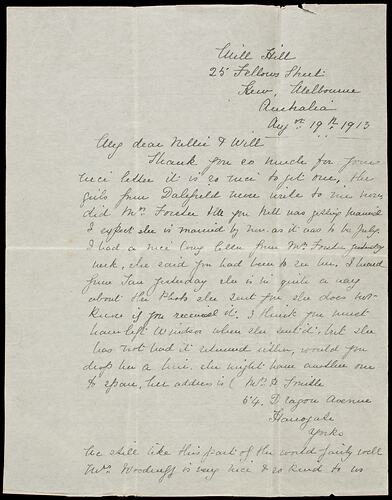 Mill Hill
25 Fellows Street
Kew, Melbourne
Australia
Augst 19th 1913
My dear Nellie & Will
Thank you so much for your
nice letter it is so nice to get one, the
girls from Dalefield never write to me now,
did Mrs Forster tell you Nell was getting married
I expect she is married by now as it was to be July.
I had a nice long letter from Mrs Forster yesterday
week, she said you had been to see her, I heard
from yesterday she is in quite a way
about the Photo she sent you she does not
know if you received it, I think you must
have left Windsor when she sent it, but she
has not had it returned either, would you
drop her a line. she might have another one
to spare, her address is (Mrs H
64. Dragon Avenue
Harrogate
Yorks
We still like this part of the world fairly well
Mrs Woodruff is very nice & so kind to us